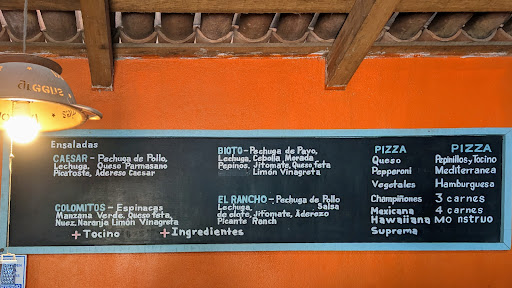 Ensaladas
CAESAR - Pechuga de Pollo,
Lechuga, Queso Parmasano
Picatoste, Adereso Caesar
COLOMITOS - Espinacas
Manzana Verde, Queso feta,
Nuez, Naranja Limón Vinagreta
+ Tocino + Ingredientes
BIOTO - Pechuga de Pavo,
Lechuga, Cebolla Morada
Pepinos, Jitomate, Queso feta
Limón Vinagreta
EL RANCHO - Pechuga de Pollo
Lechuga, Salsa
de elote, Jitomate, Aderezo
Picante Ranch
PIZZA
Queso
Pepperoni
Vegetales
Champiñones
Mexicana
Hawaiiana
Suprema
PIZZA
Pepinillos y Tocino
Mediterranea
Hamburguesa
3 carnes
4 carnes
Monstruo